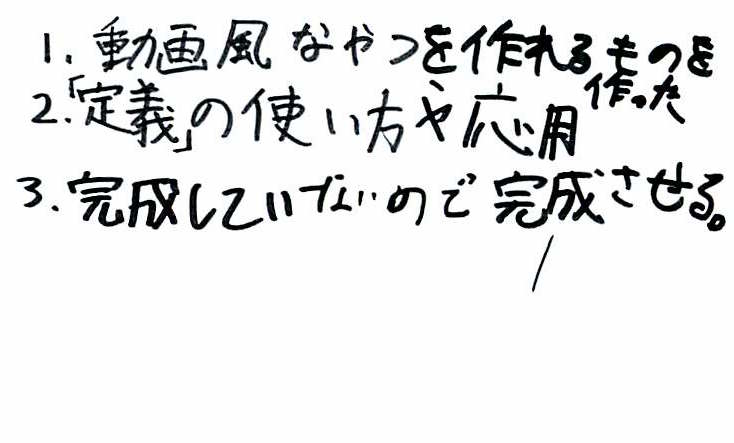 1. 動画風なやつを作れるものを
作った
2.「定義」の使い方や応用
3. 完成していないので完成させる。